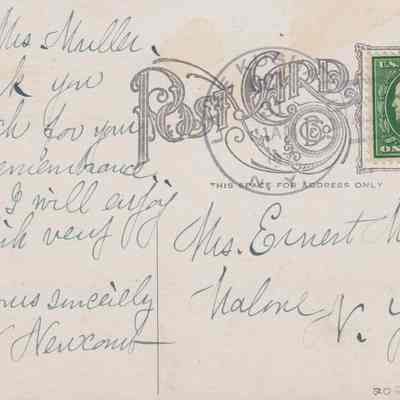 Mrs Muller.
k you
ch for you
emembrance
I will enjoy
very
ours sincerely
Newcomb
POST CARD
U.S.
ONE
THIS SPACE FOR ADDRESS ONLY
Mrs. Ernest M
Malone
N. Y